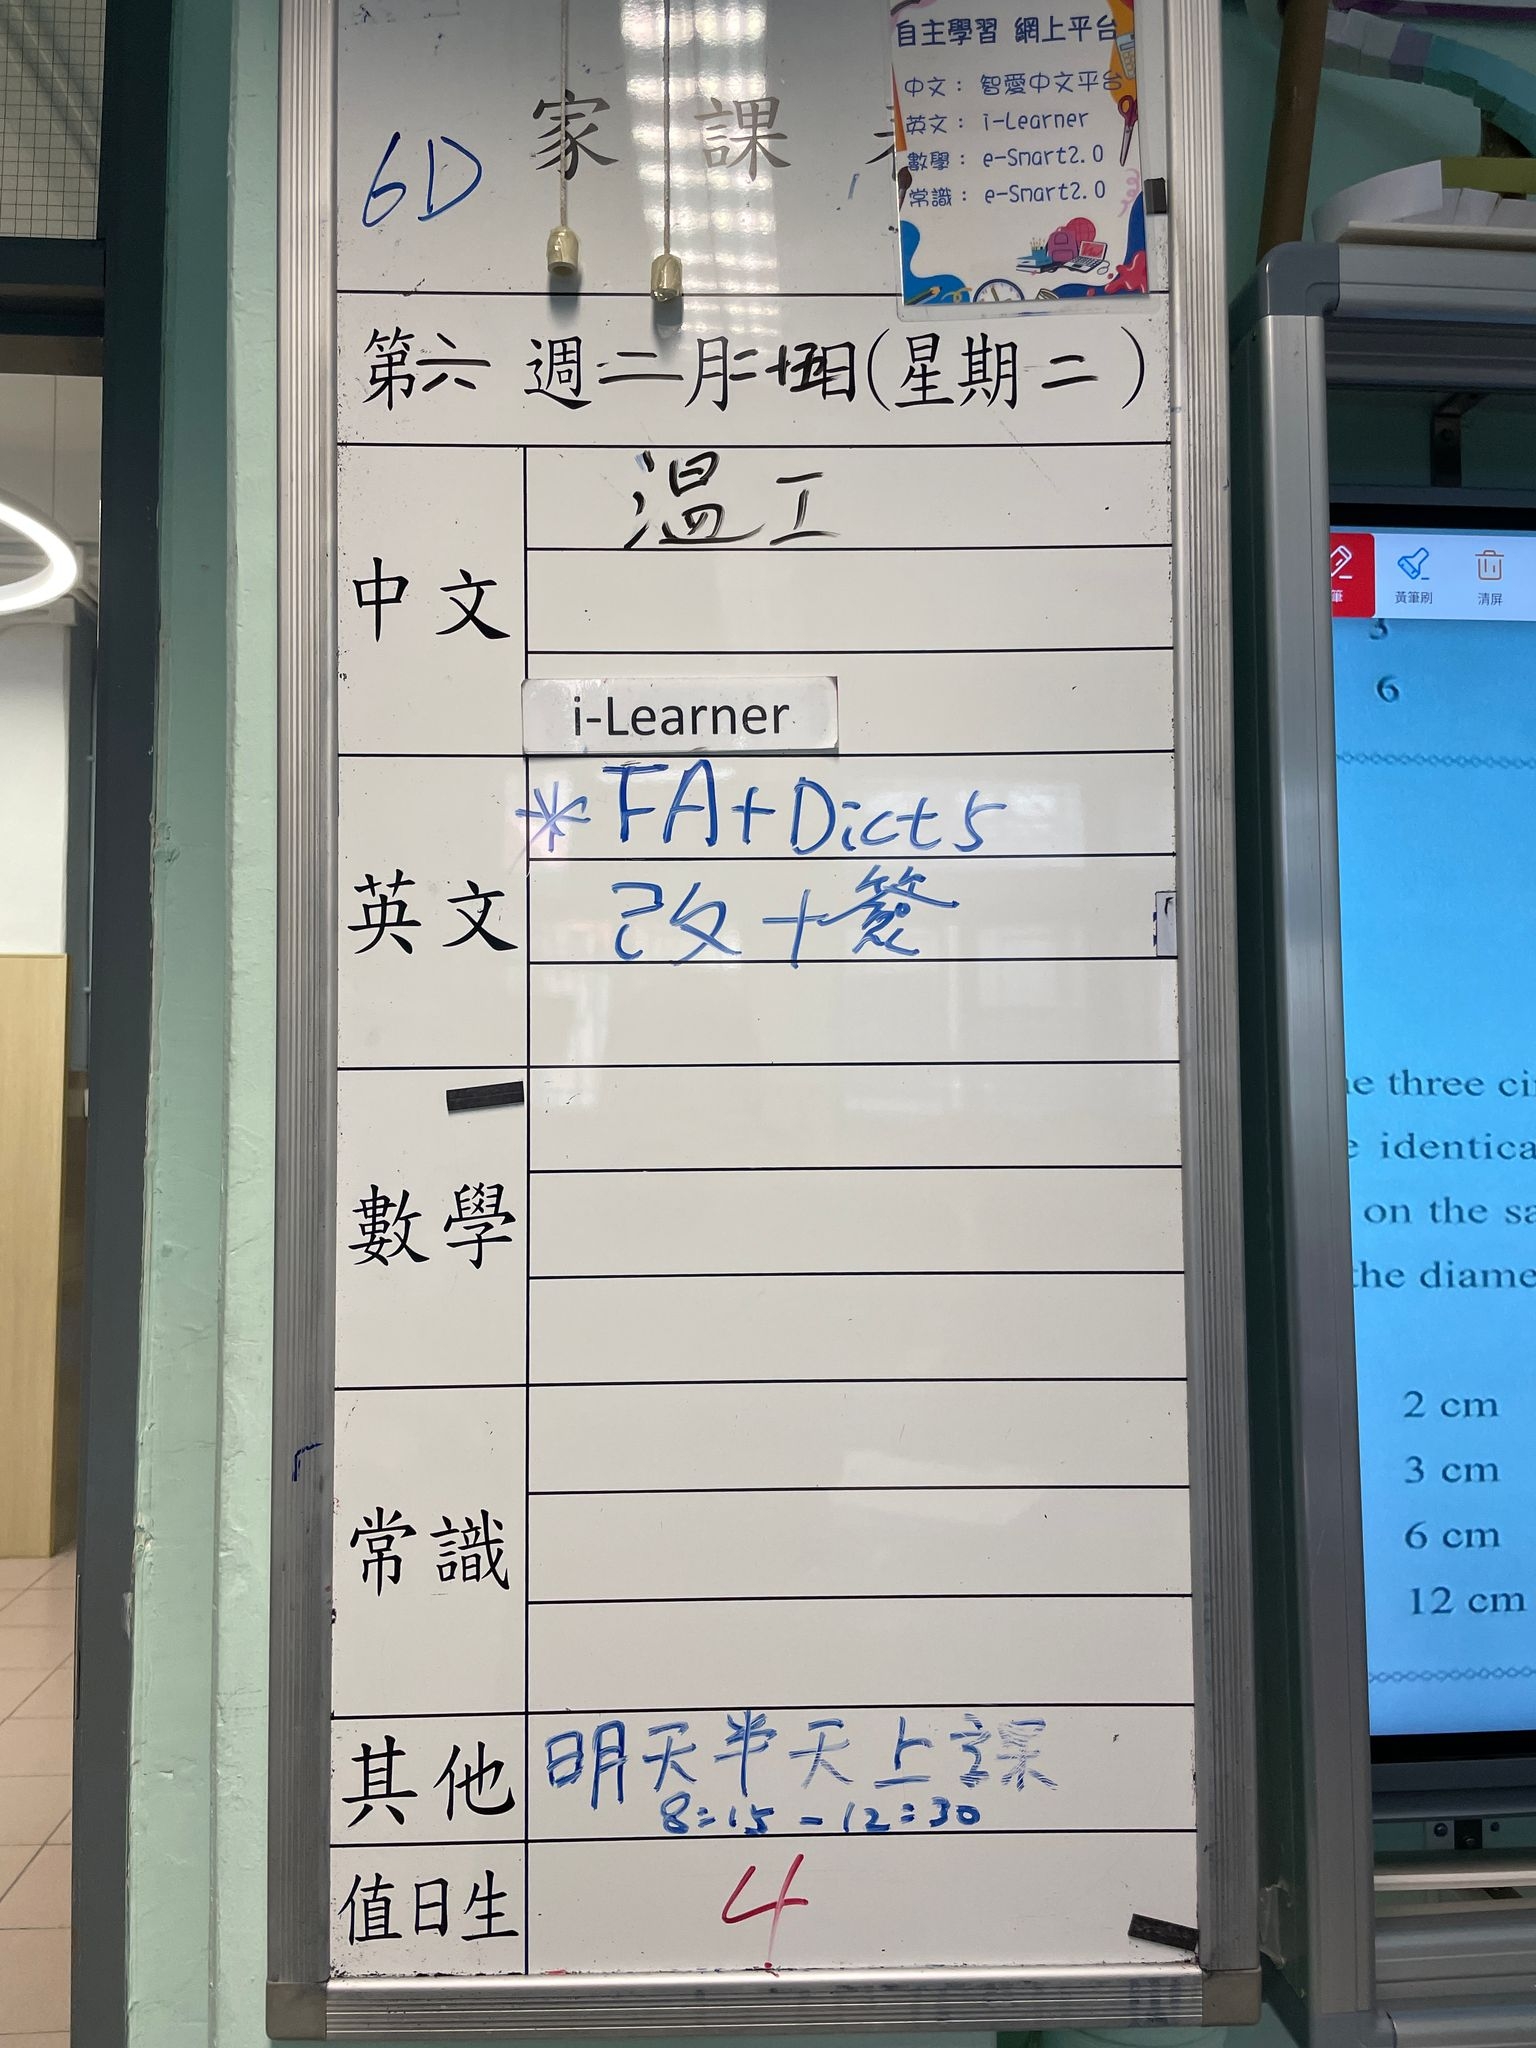 自主學習 網上平台
中文： 智愛中文平台
英文： i-Learner
數學： e-Smart2.0
常識： e-Smart2.0
家課
6D
第六週二月二十五日(星期二)
中文
溫工
i-Learner
英文
* FA+Dict5
改+簽
數學
常識
其他
明天半天上課
8:15-12:30
值日生
4
筆
黃筆刷
清屏
3
6
e three ci
identica
on the sa
the diame
2 cm
3 cm
6 cm
12 cm